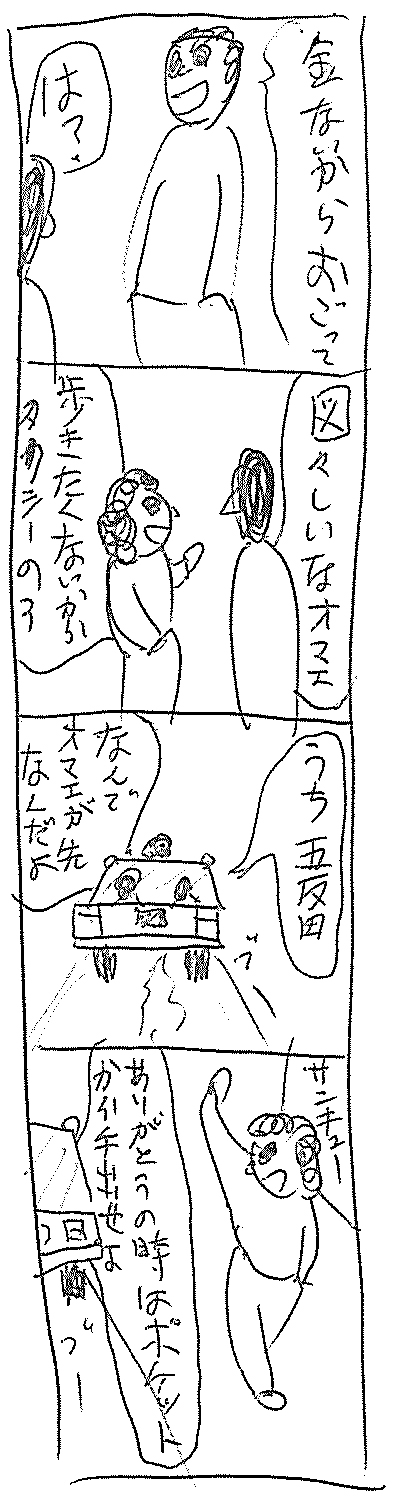 金ないからおごって
はァ?
図々しいなオマエ
歩きたくないから
タクシーのろ
うち五反田
なんで
オマエが先
なんだよ
ブー
サンキュー
ありがとうの時はポケット
から手出せよ
ブー